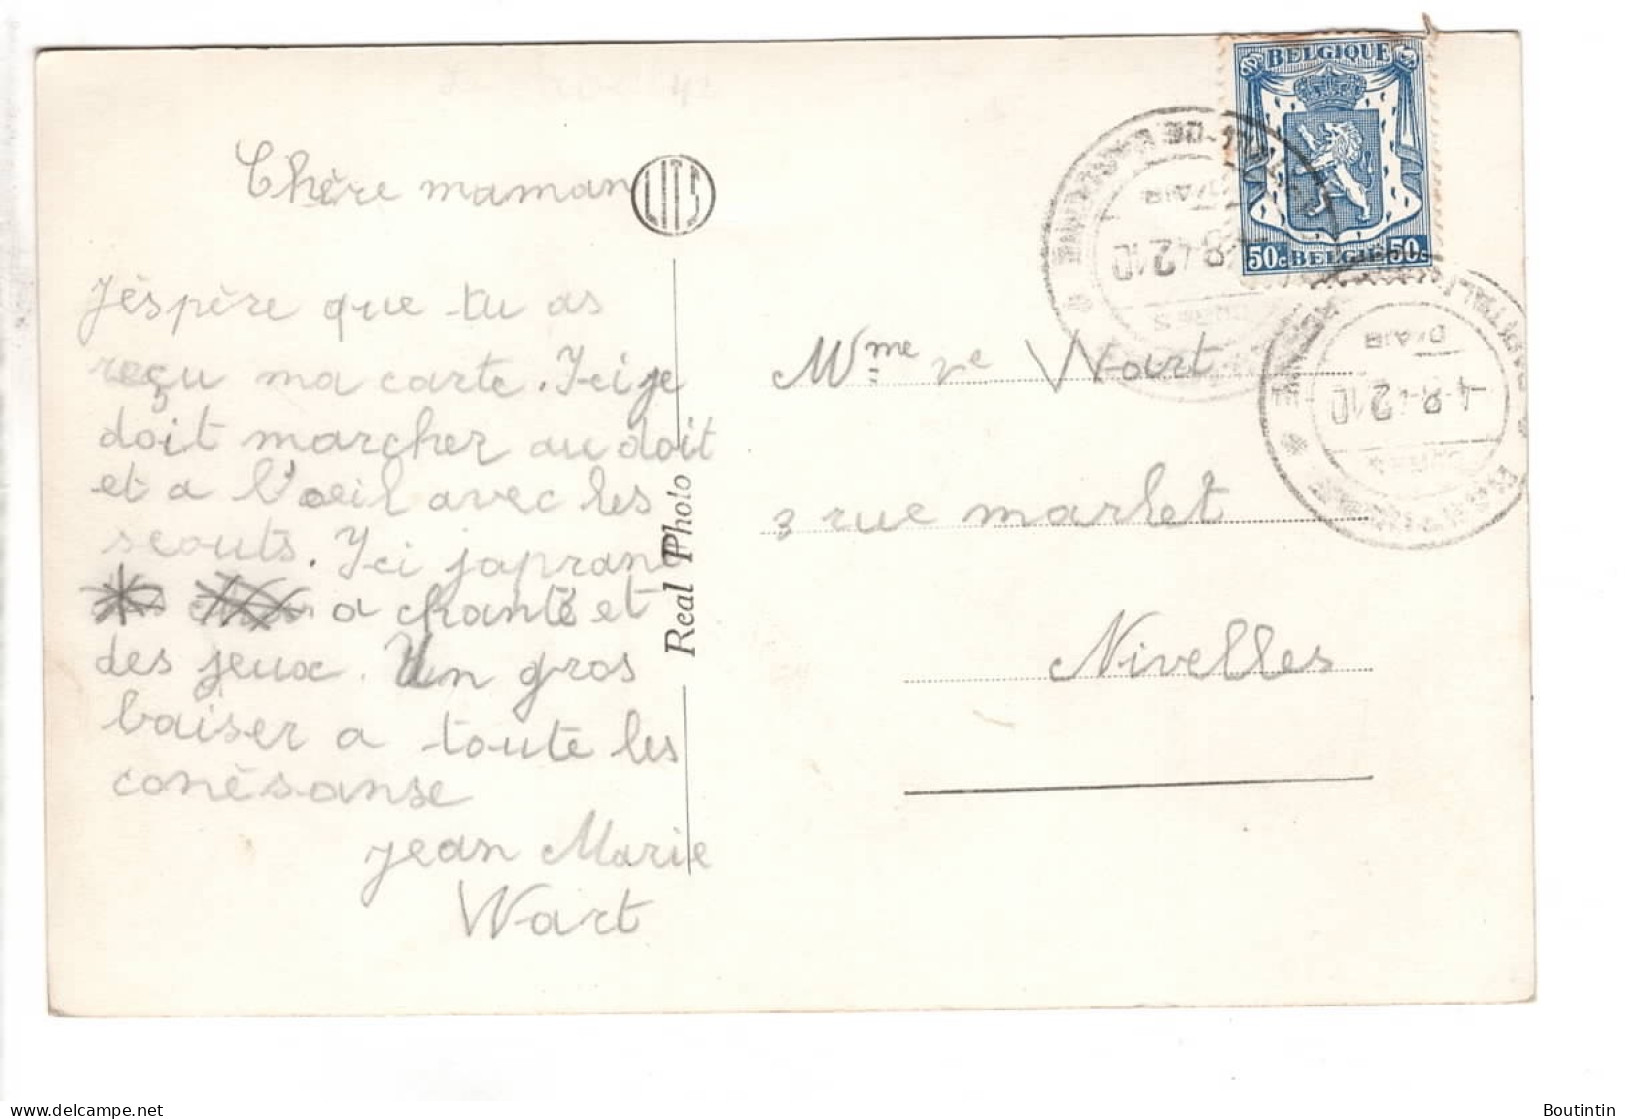 Chère maman
LITS
J'éspère que tu as
reçu ma carte. Ici je
doit marcher au doit
et a l'oeil avec les
scouts. Ici japrand
a chanté et
des jeux. Un gros
baiser a toute les
conésanse
jean Marie
Wart
Real Photo
BELGIQUE
50c BELGIE 50c
4-8-42 10
4-8-42 10
Mme ve Wart
3 rue marlet
Nivelles
Boutintin